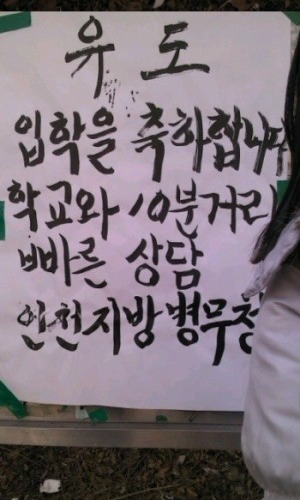 유도
입학을 축하합니다
학교와 10분거리
빠른 상담
인천지방병무청